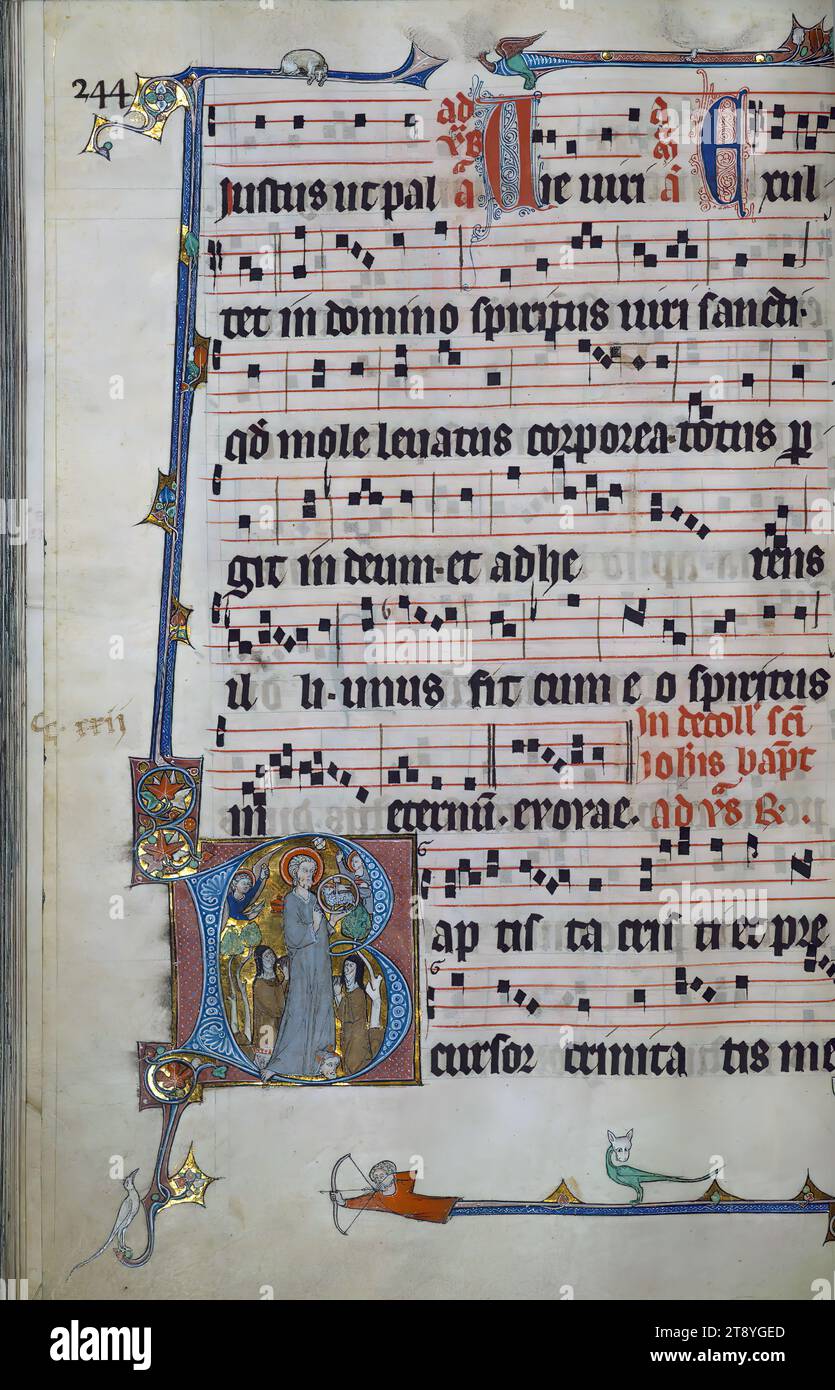 244
Justus ut pal ad vs̄ ā Die viri ad ā Exul
tet in domino spiritus viri sancti.
qd̄ mole levatus corporea. totus p
git in deum. et adhe rens
il li. unus fit cum e o spiritus
cc. xxij
in eternū. evovae. In decoll' scī
Joh̄is bapt
ad vs̄ R.
Bap tis ta cris ti et pre
cursor trinita tis me
alamy
Image ID: 2T8YGED
www.alamy.com